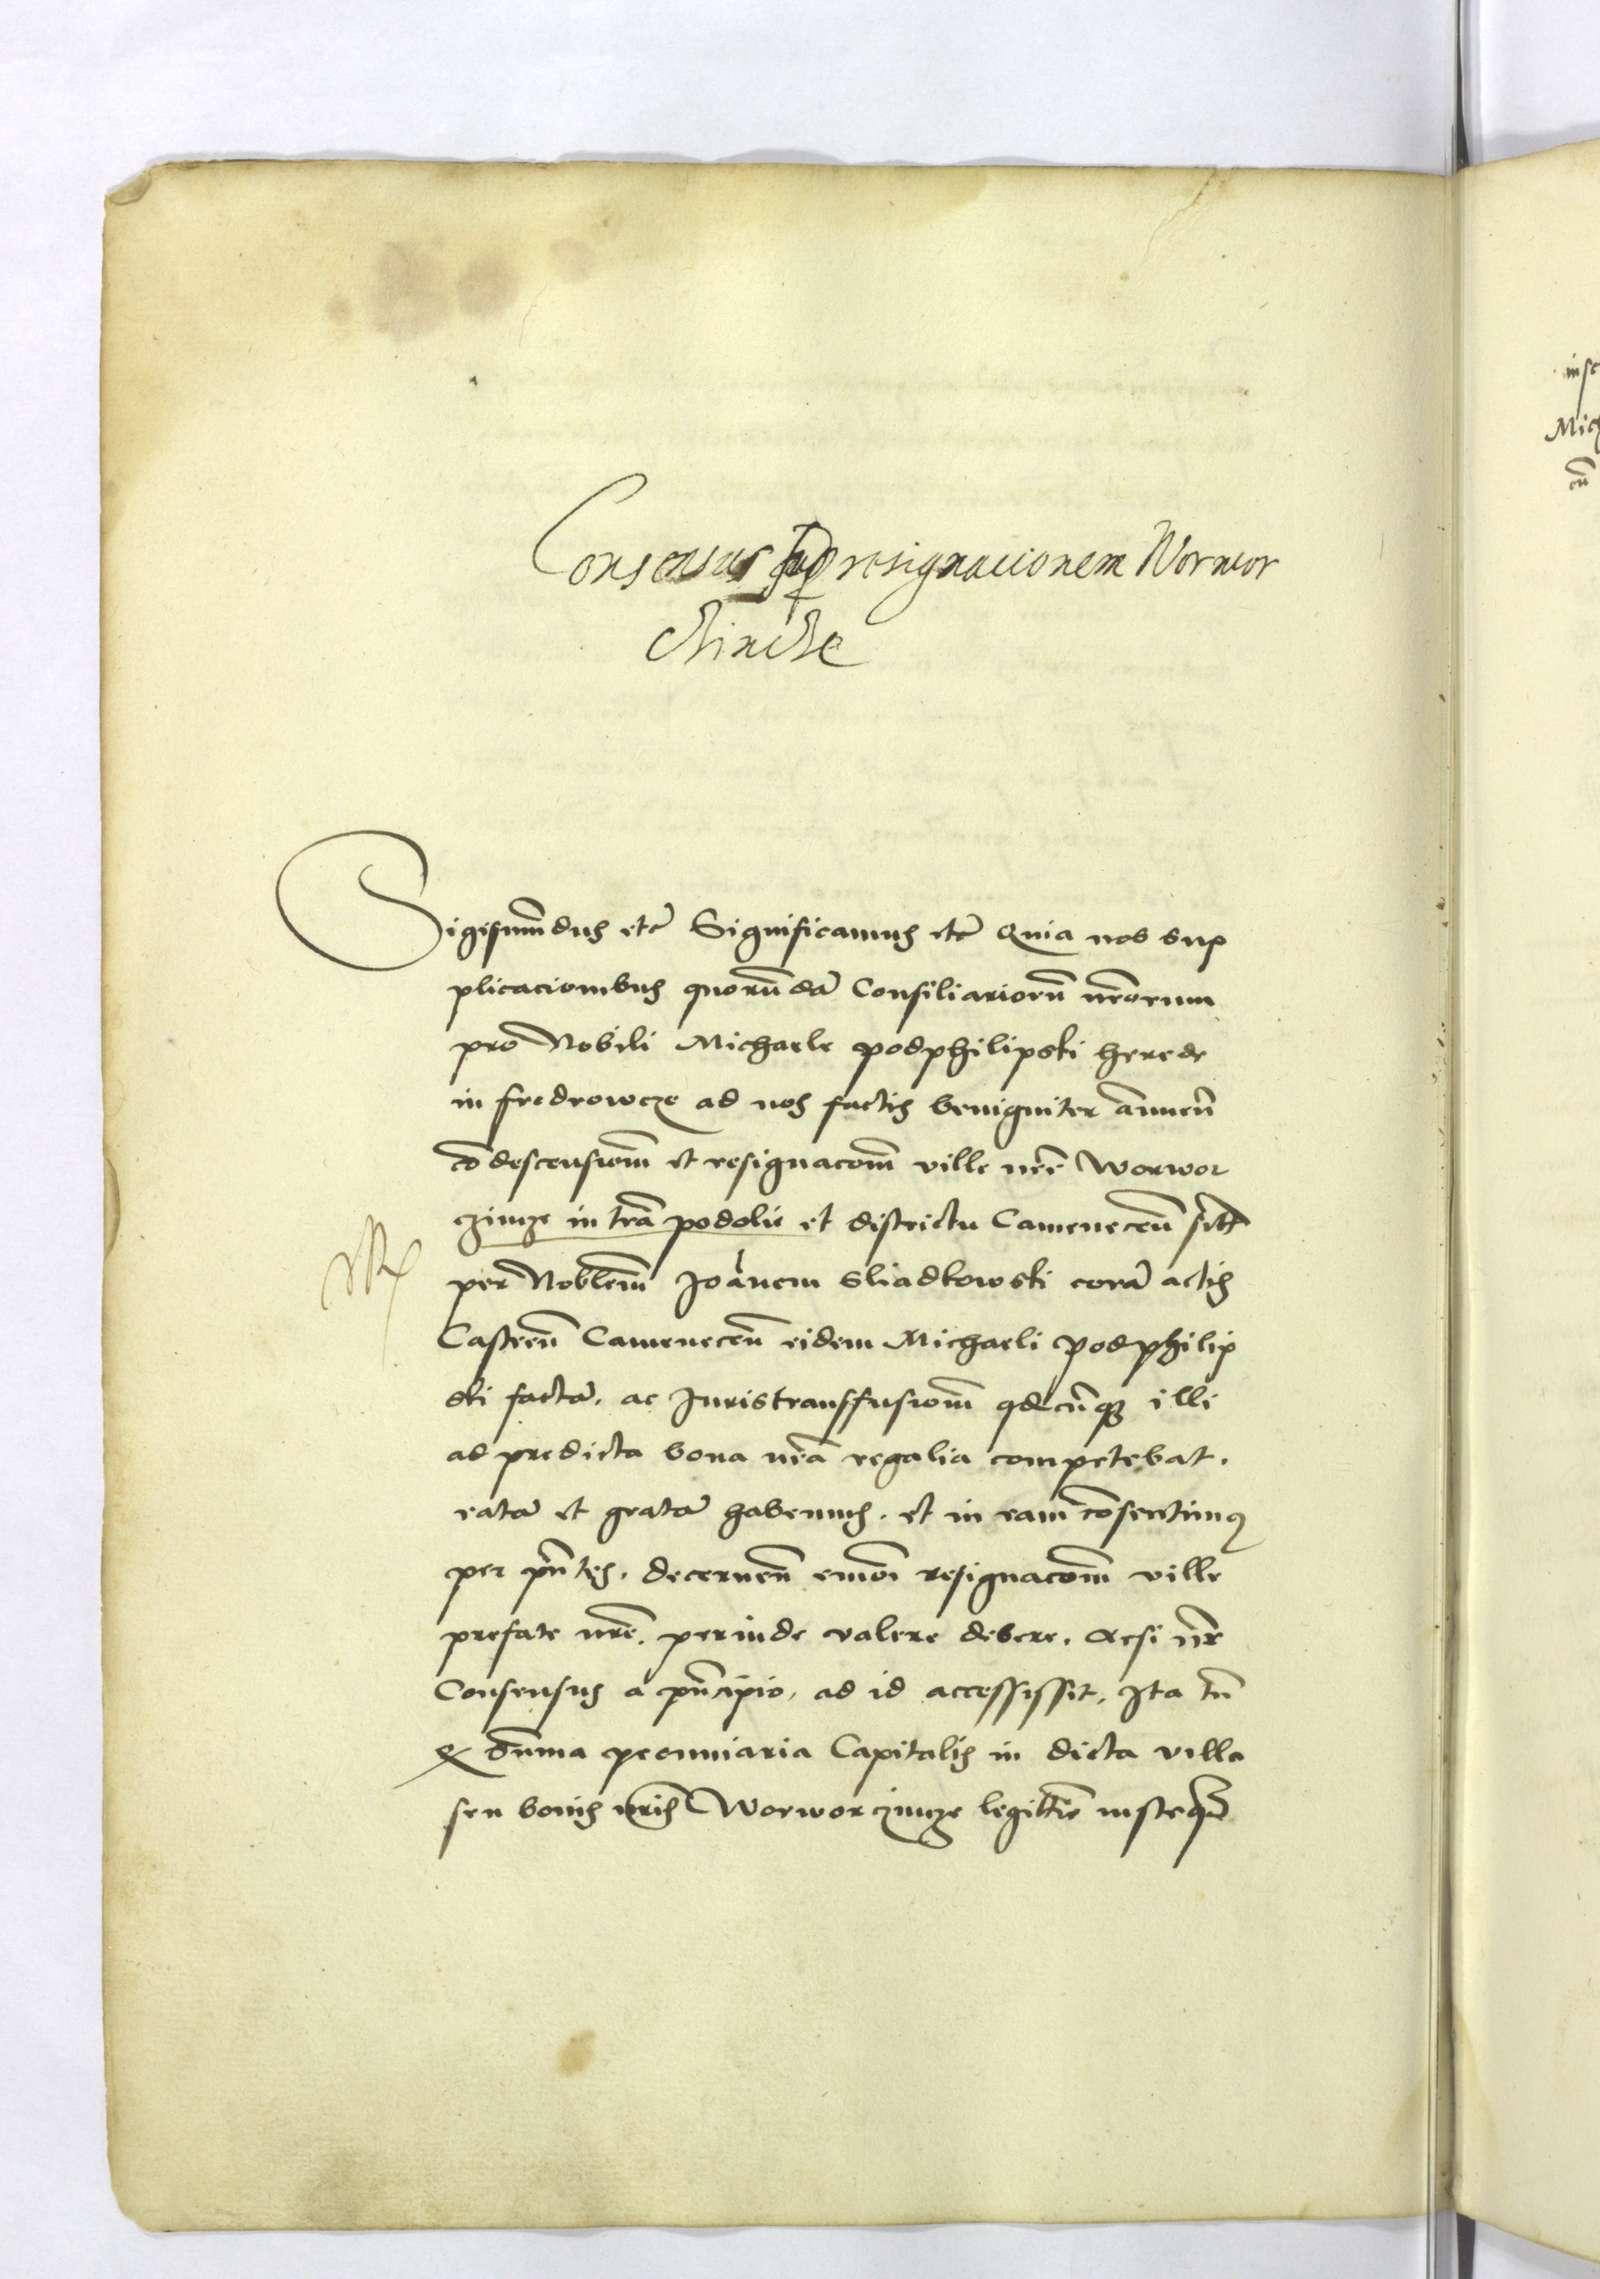 Consensus sup resignacionem Worwor
chincze
Sigismundus etc Significamus etc Quia nos sup
plicacionibus quorūdā Consiliariorū nrōrum
pro Nobili Michaele podphilipski herede
in fredrowcze ad nos factis benigniter annuen̄
cōdescensionm̄ et resignacōnm̄ ville nrē Worwor
czincze in trā podolie et districtu Camenecen̄ sitā
per Noblem̄ Joānem Sliadkowski corā actis
Castren̄ Camenecen̄ eidem Michaeli podphilip
ski factā. ac Juris transfusionm̄ qdcūqȝ illi
ad predicta bona nrā regalia competebat.
ratā et gratā habemus. et in eam cōsentimus
per pn̄tes. decernen̄ em̄oi resignacōnm̄ ville
prefate nrē. perinde valere debere. acsi nr̄
Consensus a pn̄cipio. ad id accessissit. Ita tn̄
qȝ Sūma pecuniaria Capitalis in dicta villa
seu bonis nrīs Worworczincze legittīe iusteqȝ
insc
Mich
cū